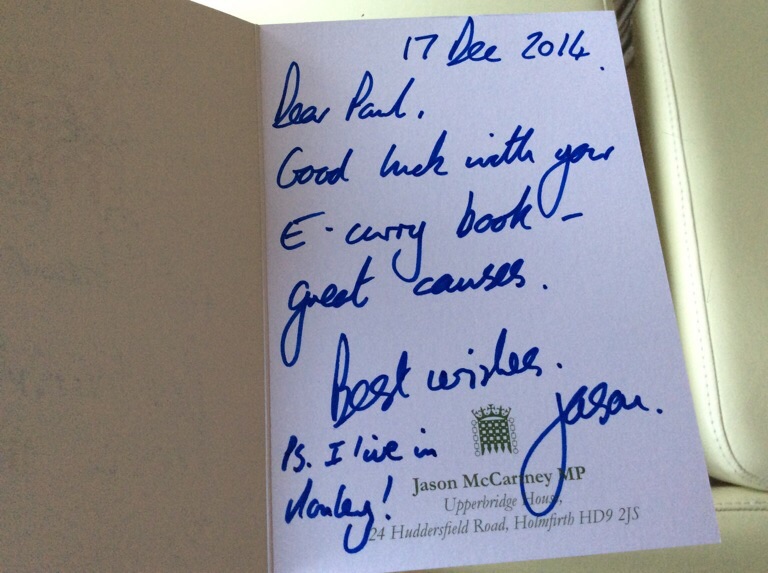 17 Dec 2014.
Dear Paul,
Good luck with your
E-curry book -
great causes.
Best wishes.
Jason.
Ps. I live in
Honley!
Jason McCartney MP
Upperbridge House,
24 Huddersfield Road, Holmfirth HD9 2JS